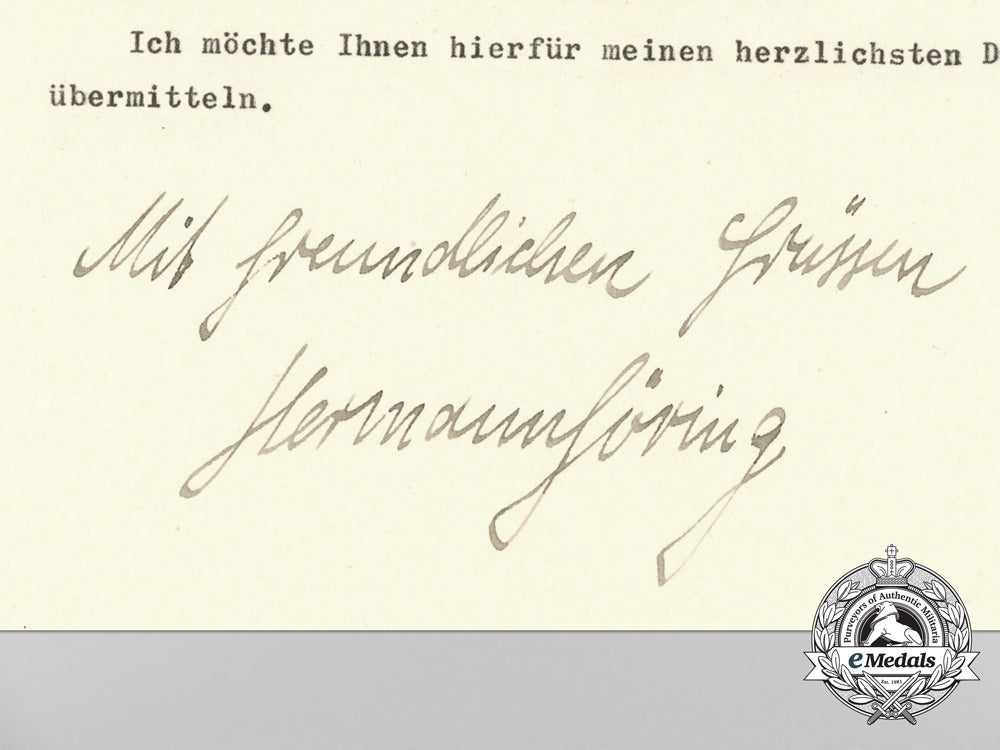 Ich möchte Ihnen hierfür meinen herzlichsten D
übermitteln.
Mit freundlichen Grüssen
Hermann Göring
Purveyors of Authentic Militaria
eMedals
Est. 1981